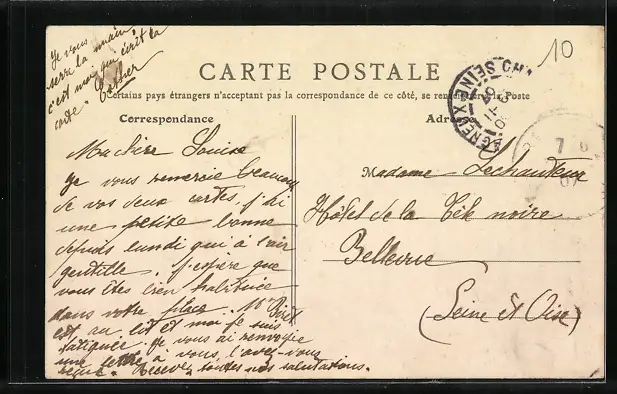 Je vous
serre la main
c'est moi qui écrit la
carte
10
CARTE POSTALE
Certains pays étrangers n'acceptant pas la correspondance de ce côté, se renseigner à la Poste
Correspondance
Adresse
Ma chère Louise
Je vous remercie beaucoup
de vos deux cartes, j'ai
une petite bonne
depuis lundi qui à l'air
gentille. J'espère que
vous êtes bien habituée
dans votre place. Mr
est au lit et moi je suis
fatiguée. Je vous ai renvoyé
une lettre à vous, l'avez-vous
reçue. Recevez toutes nos salutations.
CH AGNEUX SEINE
7 6
07
Madame Lechanteur
Hôtel de la Tête noire
Bellevue
(Seine et Oise)